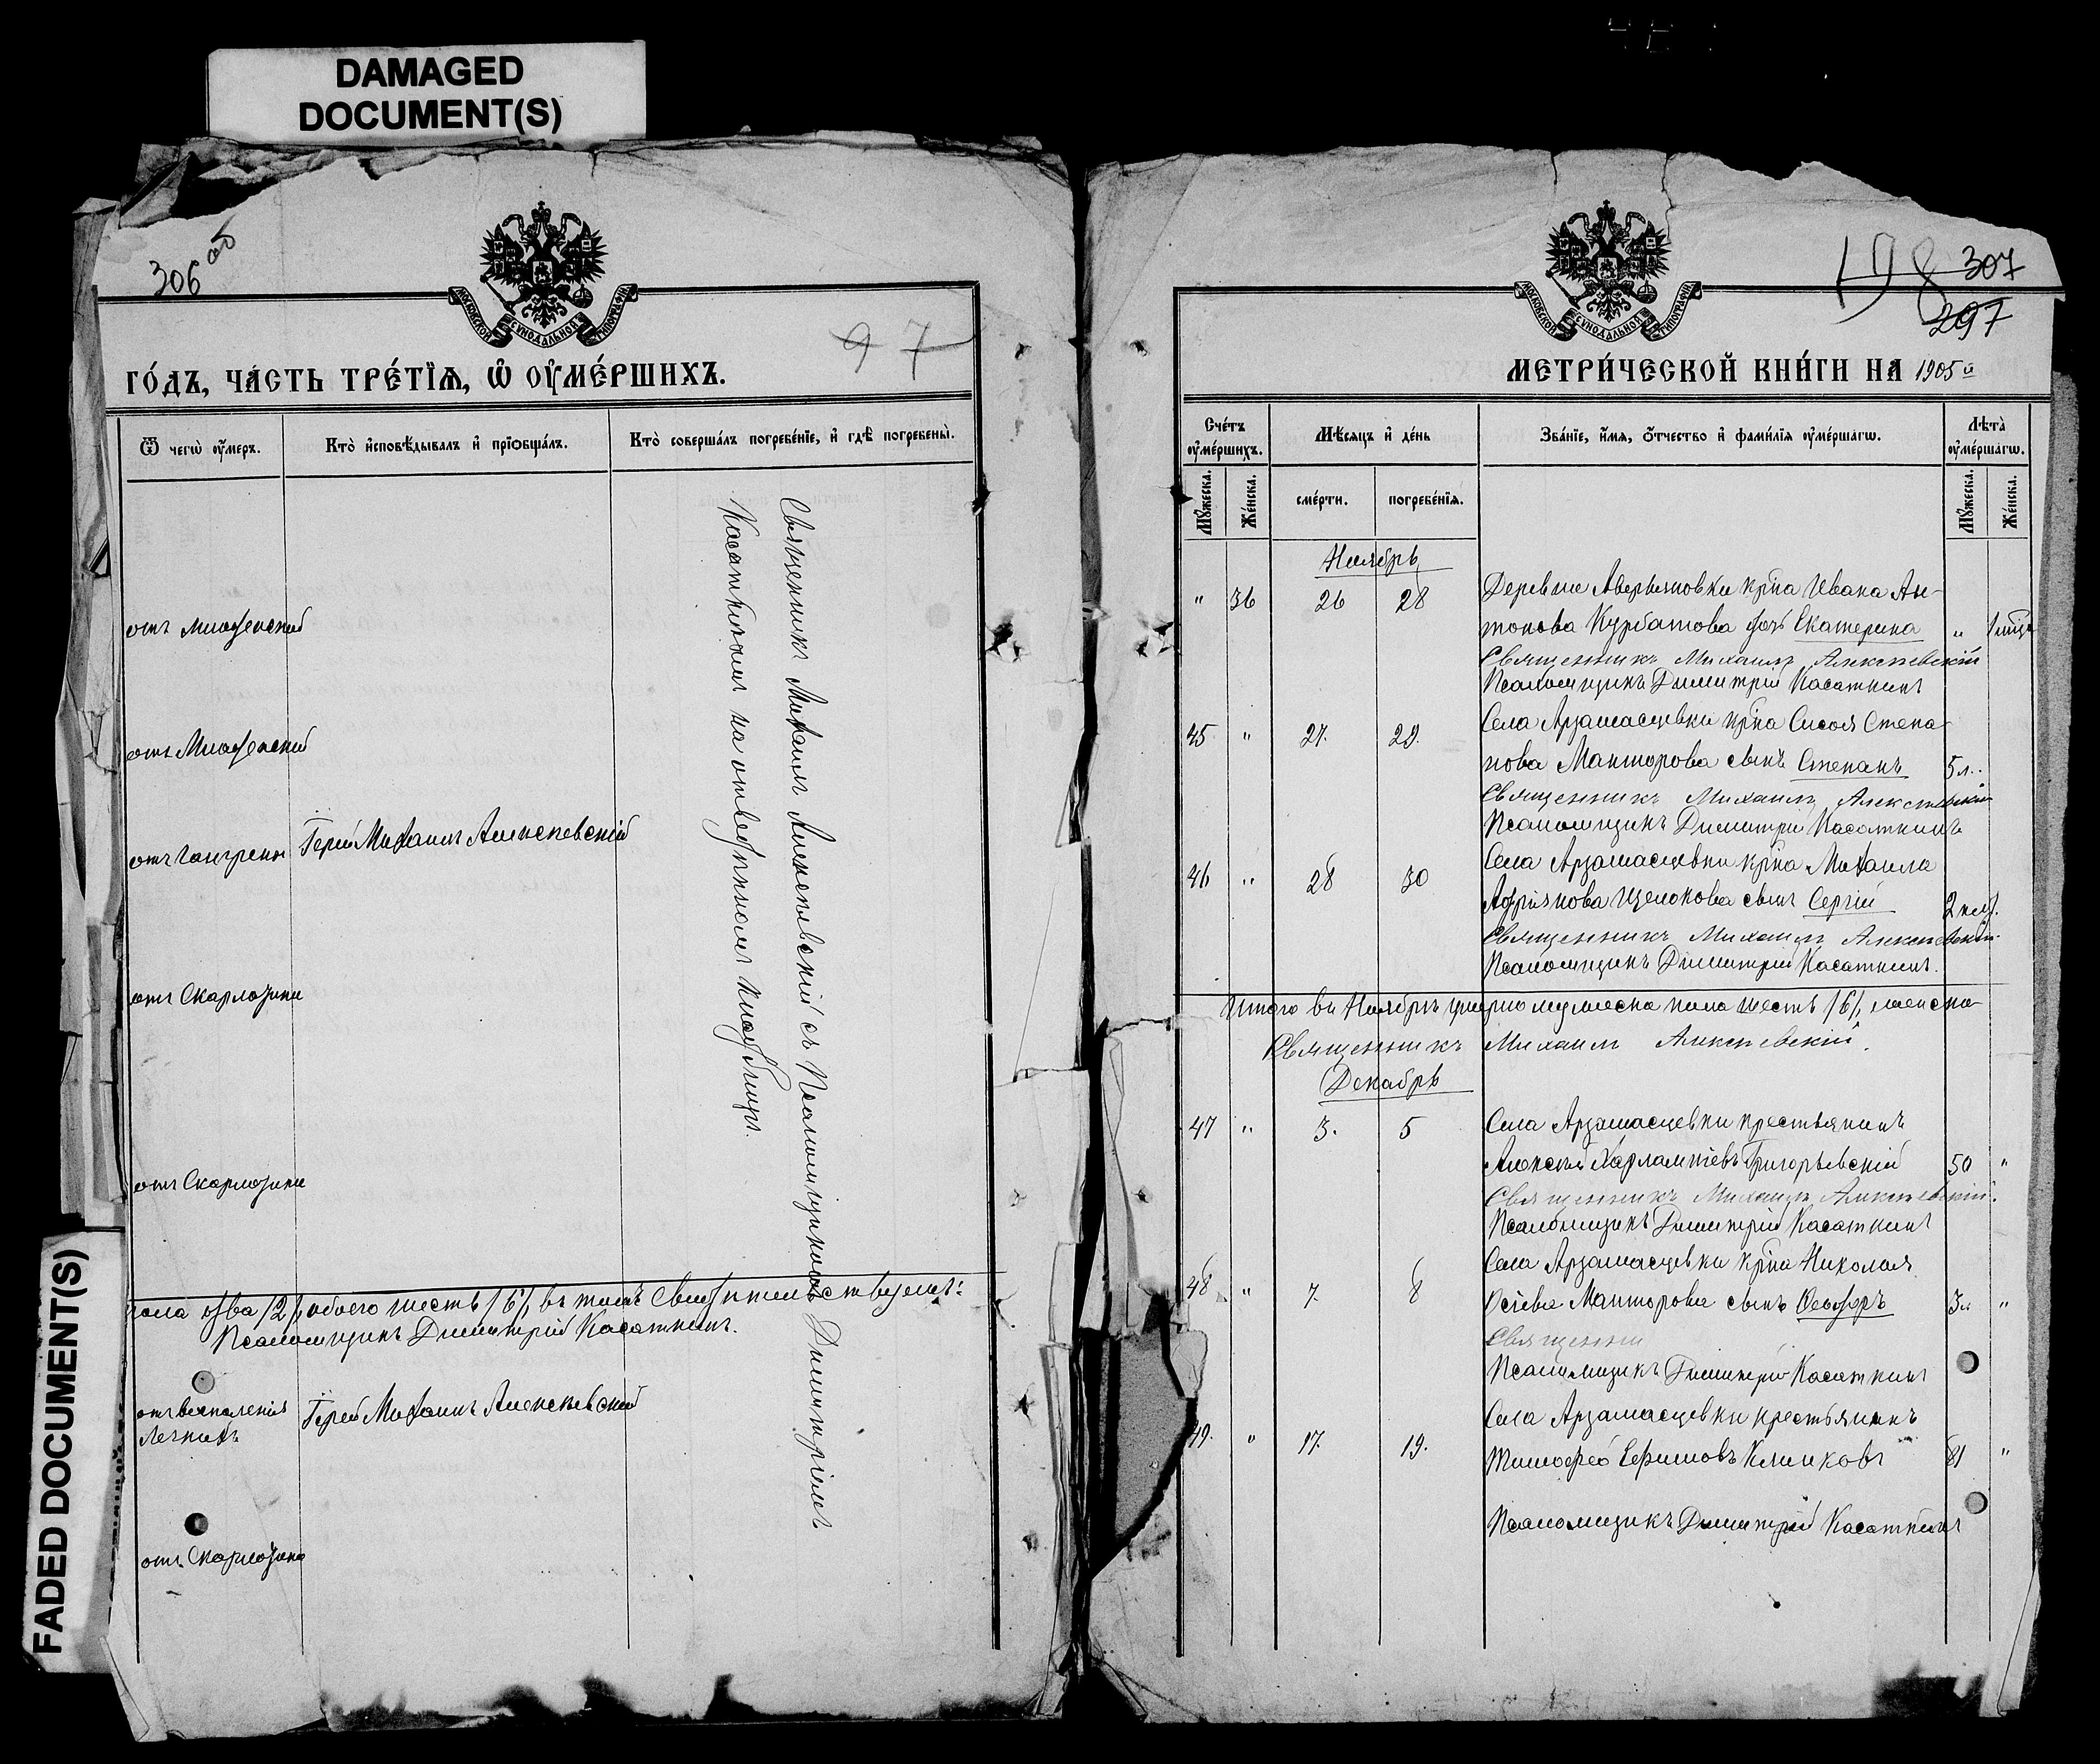 DAMAGED
DOCUMENT(S)
FADED DOCUMENT(S)
306 об
97
МОСКОВСКОЙ СѴНОДАЛЬНОЙ ТИПОГРАФІИ
ГО́ДЪ, ЧА́СТЬ ТРЕ́ТІѦ, Ѡ҆ ОУ҆МЕ́РШИХЪ.
Ѿ чегѡ̀ оу҆́меръ.
Кто̀ и҆сповѣ́дывалъ и҆ прїѡбща́лъ.
Кто̀ соверша́лъ погребе́нїе, и҆ гдѣ̀ погребены̀.
Священникъ Михаилъ Алексѣевскій съ Псаломщикомъ Димитріемъ
Касаткинымъ на отведенномъ кладбищѣ.
отъ младенской
отъ Младенской
отъ гангрены Іерей Михаилъ Алексѣевскій
отъ Скарлатины
отъ Скарлатины
пола два /2/, обоего шесть /6/, въ томъ свидѣтельствуемъ:
Псаломщикъ Димитрій Касаткинъ.
отъ воспаленія
легкихъ
Іерей Михаилъ Алексѣевскій
отъ Скарлатины
198 307
297
МОСКОВСКОЙ СѴНОДАЛЬНОЙ ТИПОГРАФІИ
МЕТРИ́ЧЕСКОЙ КНИ́ГИ НА 1905й
Сче́тъ оу҆ме́ршихъ.
Мѣ́сяцъ и҆ де́нь
Зва́нїе, и҆́мя, ѻ҆́тчество и҆ фами́лїя оу҆ме́ршагѡ.
Лѣта̀ оу҆ме́ршагѡ.
Мꙋ́жеска. Же́нска. сме́рти. погребе́нїя. Мꙋ́жеска. Же́нска.
Ноябрь
" 36 26 28 Деревни Аверьяновки крна Ивана Ан-
тонова Курбатова дочь Екатерина "
Священникъ Михаилъ Алексѣевскій
Псаломщикъ Димитрій Касаткинъ
45 " 27. 29. Села Арзамасцевки крна Сысоя Степа-
нова Манторова сынъ Степанъ 5 л.
Священникъ Михаилъ Алексѣевскій
Псаломщикъ Димитрій Касаткинъ
46 " 28 30 Села Арзамасцевки крна Михаила
Андріянова Щелокова сынъ Сергій 2 нед.
Священникъ Михаилъ Алексѣевскій
Псаломщикъ Димитрій Касаткинъ.
Итого въ Ноябрѣ умерло мужеска пола шесть /6/, женска
Священникъ Михаилъ Алексѣевскій.
Декабрь
47 " 3. 5 Села Арзамасцевки крестьянинъ
Алексѣй Харлампіевъ Григорьевскій 50 "
Священникъ Михаилъ Алексѣевскій.
Псаломщикъ Димитрій Касаткинъ
48 " 7. 8 Села Арзамасцевки крна Николая
Осіева Манторова сынъ Ѳеодоръ 3 л. "
Священни
Псаломщикъ Димитрій Касаткинъ
49. " 17. 19. Села Арзамасцевки крестьянинъ
Тимоѳей Ефимовъ Климковъ 81 "
Псаломщикъ Димитрій Касаткинъ